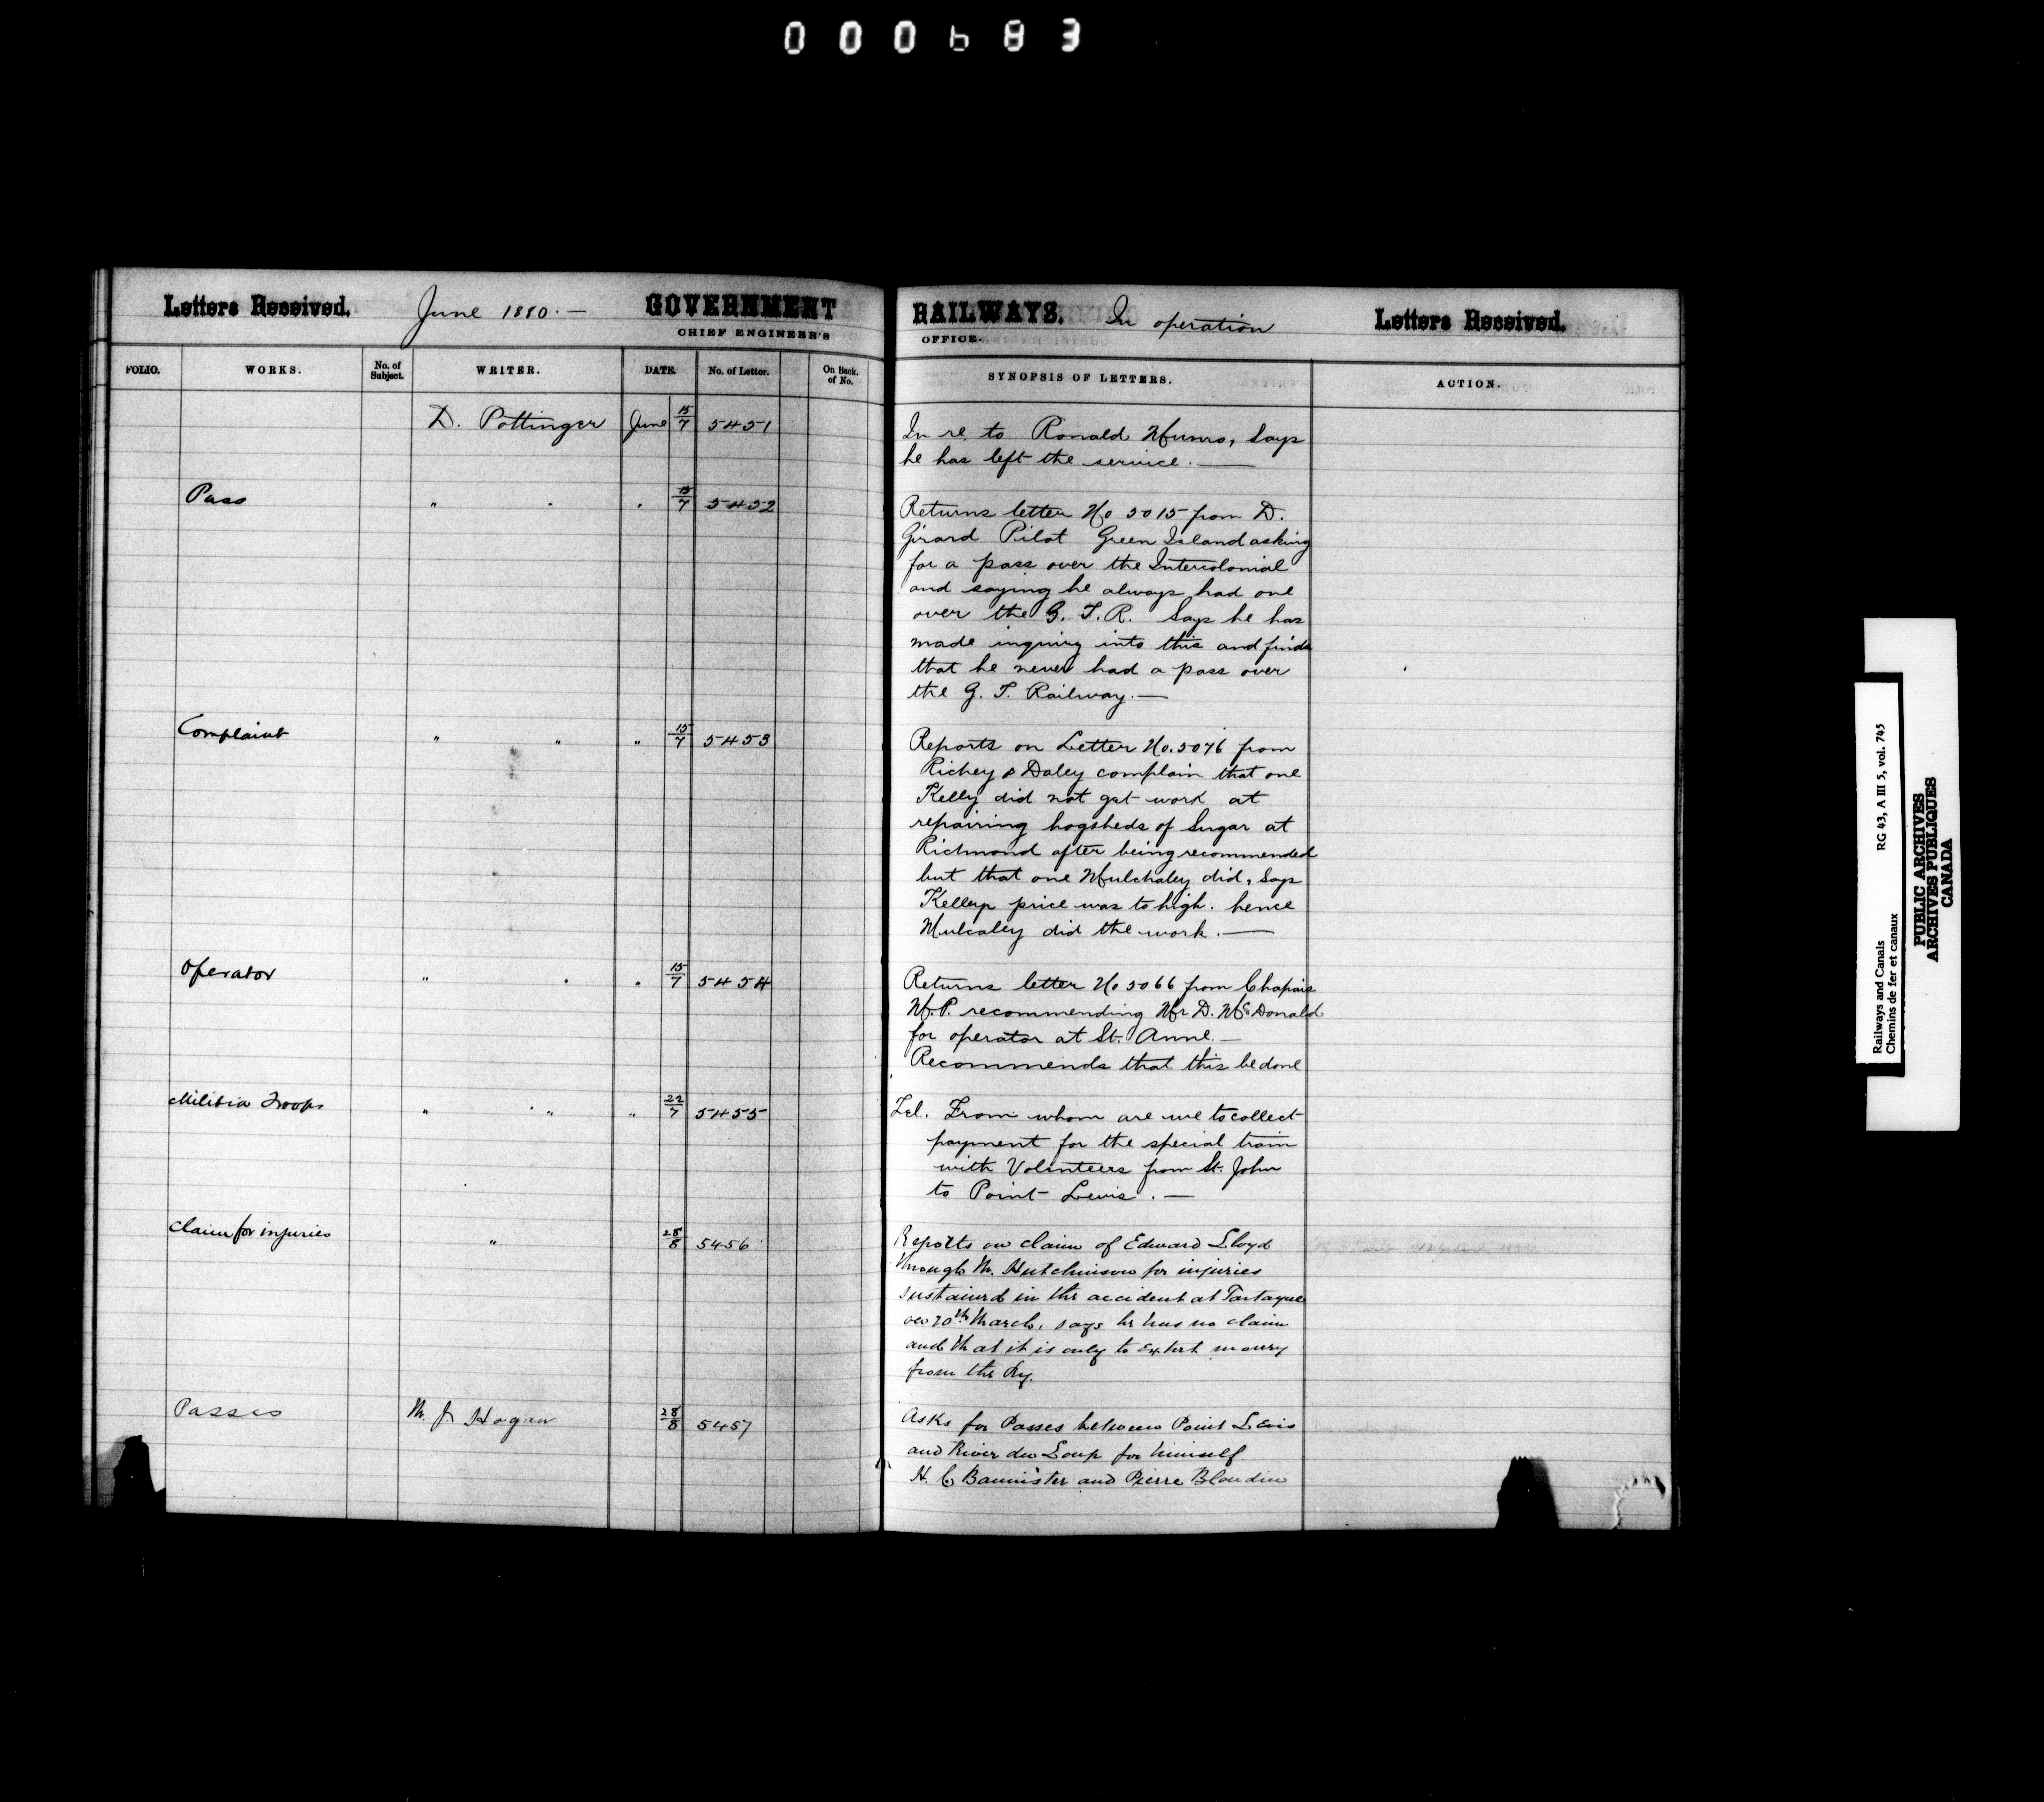 000683
Letters Received. June 1880.— GOVERNMENT RAILWAYS. In operation Letters Received.
CHIEF ENGINEER'S OFFICE.
FOLIO. WORKS. No. of Subject. WRITER. DATE. No. of Letter. On Back. of No. SYNOPSIS OF LETTERS. ACTION.
D. Pottinger June 15/7 5451 In re to Ronald Munro, Says
he has left the service.—
Pass " " " 15/7 5452 Returns letter No 5015 from D.
Girard Pilot Green Island asking
for a pass over the Intercolonial
and saying he always had one
over the G. T. R. Says he has
made inquiry into this and finds
that he never had a pass over
the G. T. Railway.—
Complaint " " " 15/7 5453 Reports on Letter No. 5076 from
Richey & Daley complain that one
Kelly did not get work at
repairing hogsheds of Sugar at
Richmond after being recommended
but that one Mulchaley did, Says
Kellys price was to high. hence
Mulcaley did the work.—
Operator " " " 15/7 5454 Returns letter No 5066 from Chapais
M.P. recommending Mr D. McDonald
for operator at St. Anne.—
Recommends that this be done
Militia Troops " " " 22/7 5455 Tel. From whom are we to collect
payment for the special train
with Volunteers from St. John
to Point Levis.—
Claim for injuries " 28/8 5456 Reports on claim of Edward Lloyd
through M. Hutchinson for injuries
sustained in the accident at Tartague
on 20th March, says he has no claim
and that it is only to extort money
from the Ry.
Passes M. J. Hogan 28/8 5457 Asks for Passes between Point Levis
and River du Loup for himself
H. C Bannister and Pierre Blondin
Railways and Canals RG 43, A III 5, vol. 745
Chemins de fer et canaux
PUBLIC ARCHIVES
ARCHIVES PUBLIQUES
CANADA